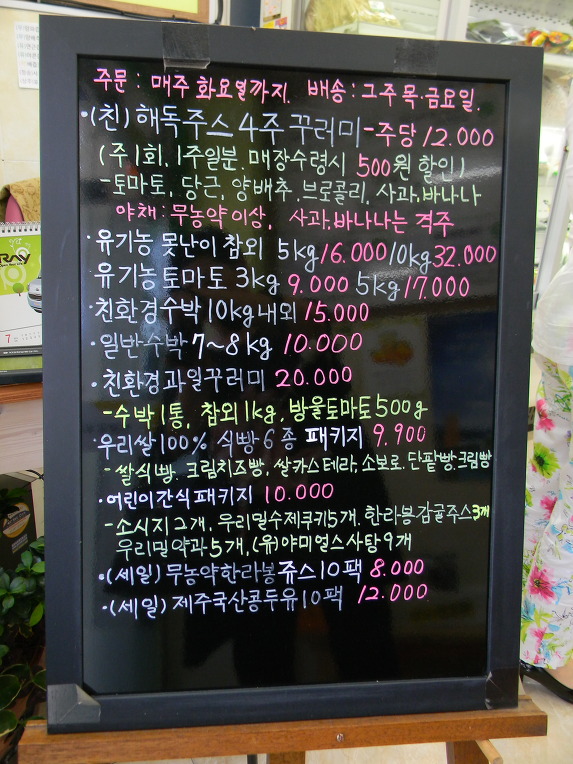 주문 : 매주 화요일까지. 배송 : 그주 목·금요일.
·(친) 해독주스 4주 꾸러미 - 주당 12.000
(주 1회, 1주일분. 매장수령시 500원 할인)
- 토마토, 당근, 양배추, 브로콜리, 사과, 바나나
야채 : 무농약이상, 사과, 바나나는 격주
·유기농 못난이 참외 5kg 16.000 / 10kg 32.000
·유기농토마토 3kg 9.000 5kg 17.000
·친환경수박 10kg 내외 15.000
·일반수박 7~8kg 10.000
·친환경과일꾸러미 20.000
- 수박 1통, 참외 1kg, 방울토마토 500g
·우리쌀 100% 식빵 6종 패키지 9.900
- 쌀식빵. 크림치즈빵, 쌀카스테라, 소보로. 단팥빵. 크림빵
·어린이간식패키지 10.000
- 소시지 2개, 우리밀수제쿠키 5개, 한라봉감귤주스 3개
우리밀약과 5개, (유)야미얼스사탕 9개
·(세일) 무농약한라봉쥬스 10팩 8.000
·(세일) 제주국산콩두유 10팩 12.000
RAY
7